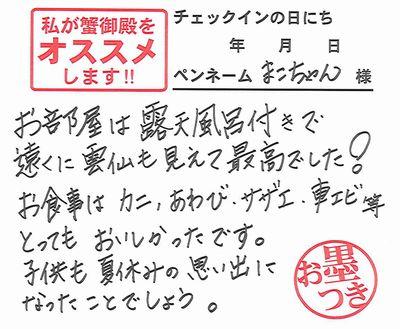 私が蟹御殿を
オススメ
します!!
チェックインの日にち
年 月 日
ペンネーム まこちゃん 様
お部屋は露天風呂付きで
遠くに雲仙も見えて最高でした!
お食事はカニ,あわび・サザエ・車エビ等
とってもおいしかったです。
子供も夏休みの思い出に
なったことでしょう。
お墨つき